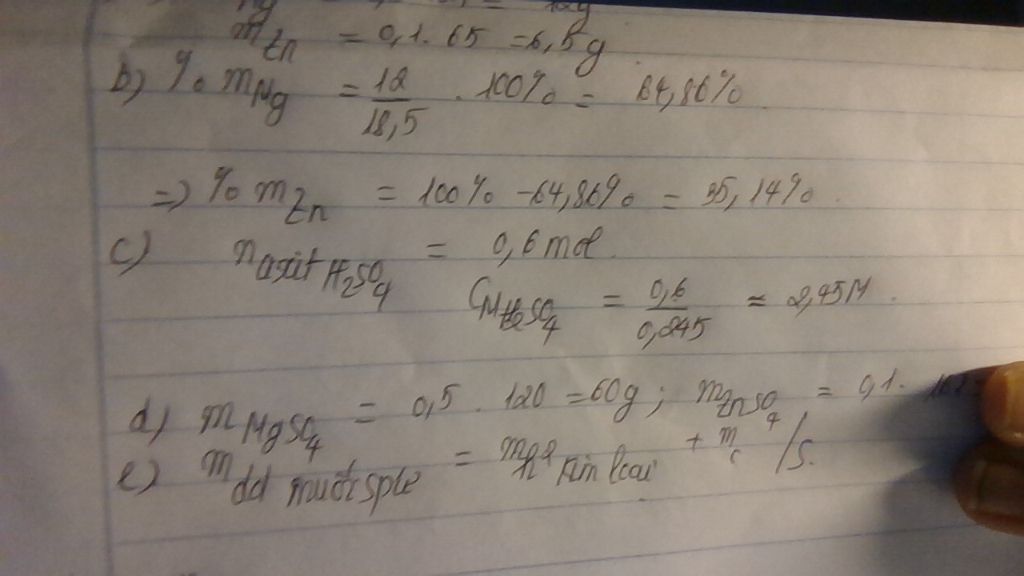 m Zn = 0,1. 65 = 6,5g
b) % m Mg = 12/18,5 . 100% = 64,86%
=> % m Zn = 100% - 64,86% = 35,14%
c) n axit H2SO4 = 0,6 mol
CM H2SO4 = 0,6/0,245 ≈ 2,45M.
d) m MgSO4 = 0,5 . 120 = 60g ; m ZnSO4 = 0,1.
e) m dd muối spư = m h² kim loại + m